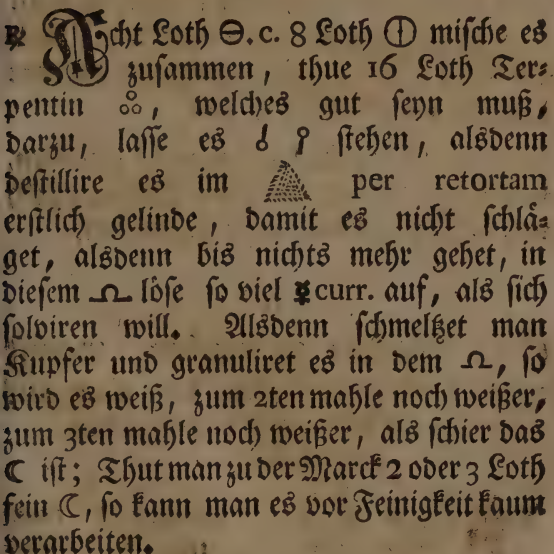 ℞ Acht Loth 🜔.c. 8 Loth 🜕 mische es
zusammen, thue 16 Loth Ter⸗
pentin ஃ, welches gut seyn muß,
darzu, lasse es ♁ ♀ stehen, alsdenn
destillire es im per retortam
erstlich gelinde, damit es nicht schlä⸗
get, alsdenn bis nichts mehr gehet, in
diesem ♎ löse so viel ☿ curr. auf, als sich
solviren will. Alsdenn schmeltzet man
Kupfer und granuliret es in dem ♎, so
wird es weiß, zum 2ten mahle noch weißer,
zum 3ten mahle noch weißer, als schier das
☾ ist; Thut man zu der Marck 2 oder 3 Loth
fein ☾, so kann man es vor Feinigkeit kaum
verarbeiten.